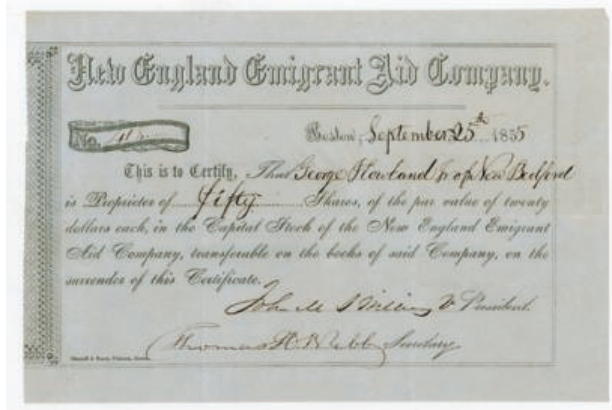 New England Emigrant Aid Company.
No.
Boston, September 25th 1855
This is to Certify, That George Howland Jr of New Bedford
is Proprietor of Fifty Shares, of the par value of twenty
dollars each, in the Capital Stock of the New England Emigrant
Aid Company, transferable on the books of said Company, on the
surrender of this Certificate.
John M S Williams V President.
Thomas H Webb Secretary